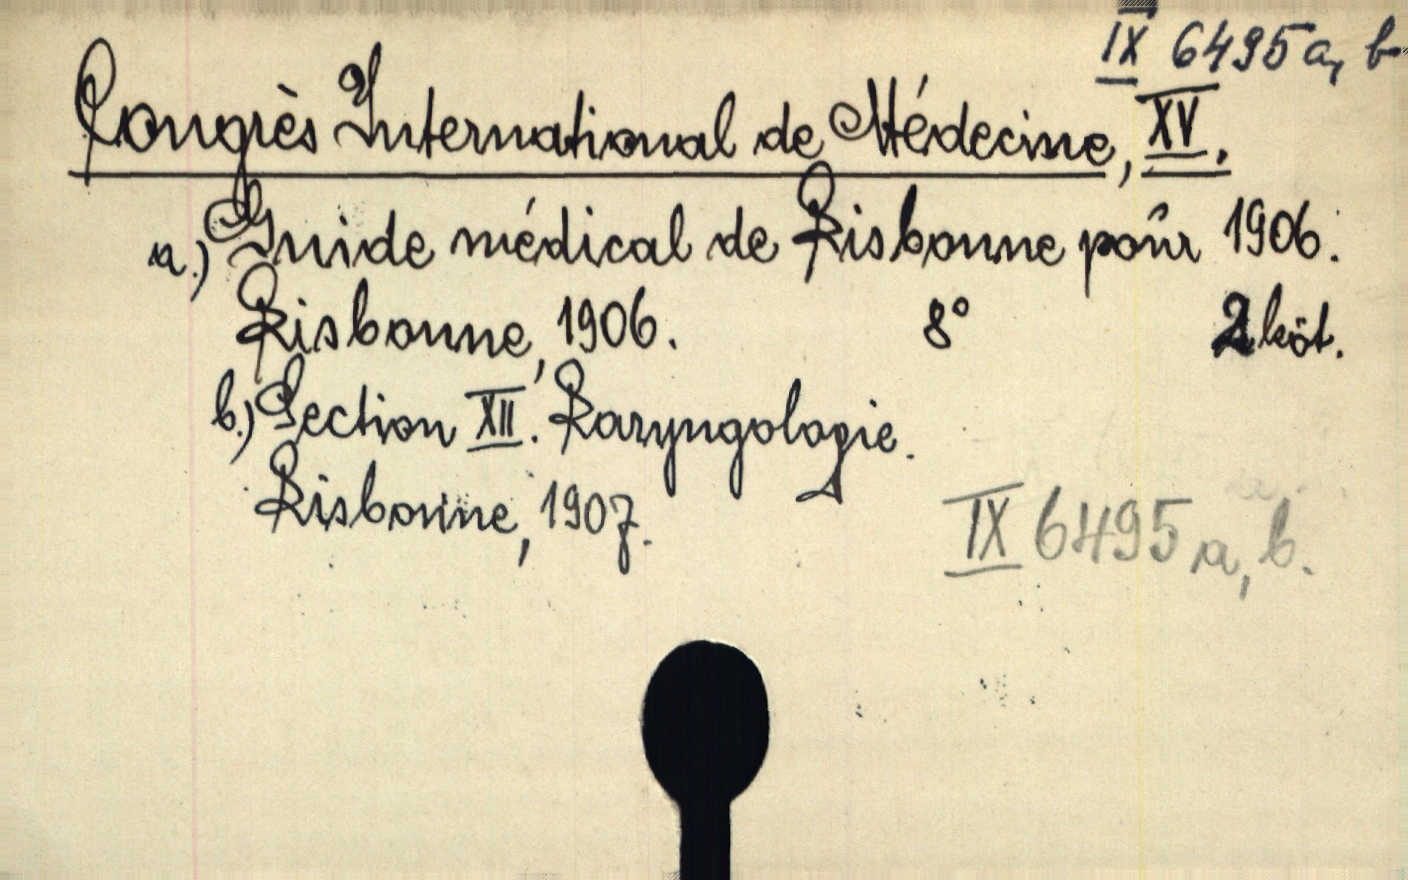 IX 6495 a, b
Congrès International de Médecine, XV.
a.) Guide médical de Lisbonne pour 1906.
Lisbonne, 1906. 8° 2 köt.
b.) Section XII. Laryngologie.
Lisbonne, 1907.
IX 6495 a, b.